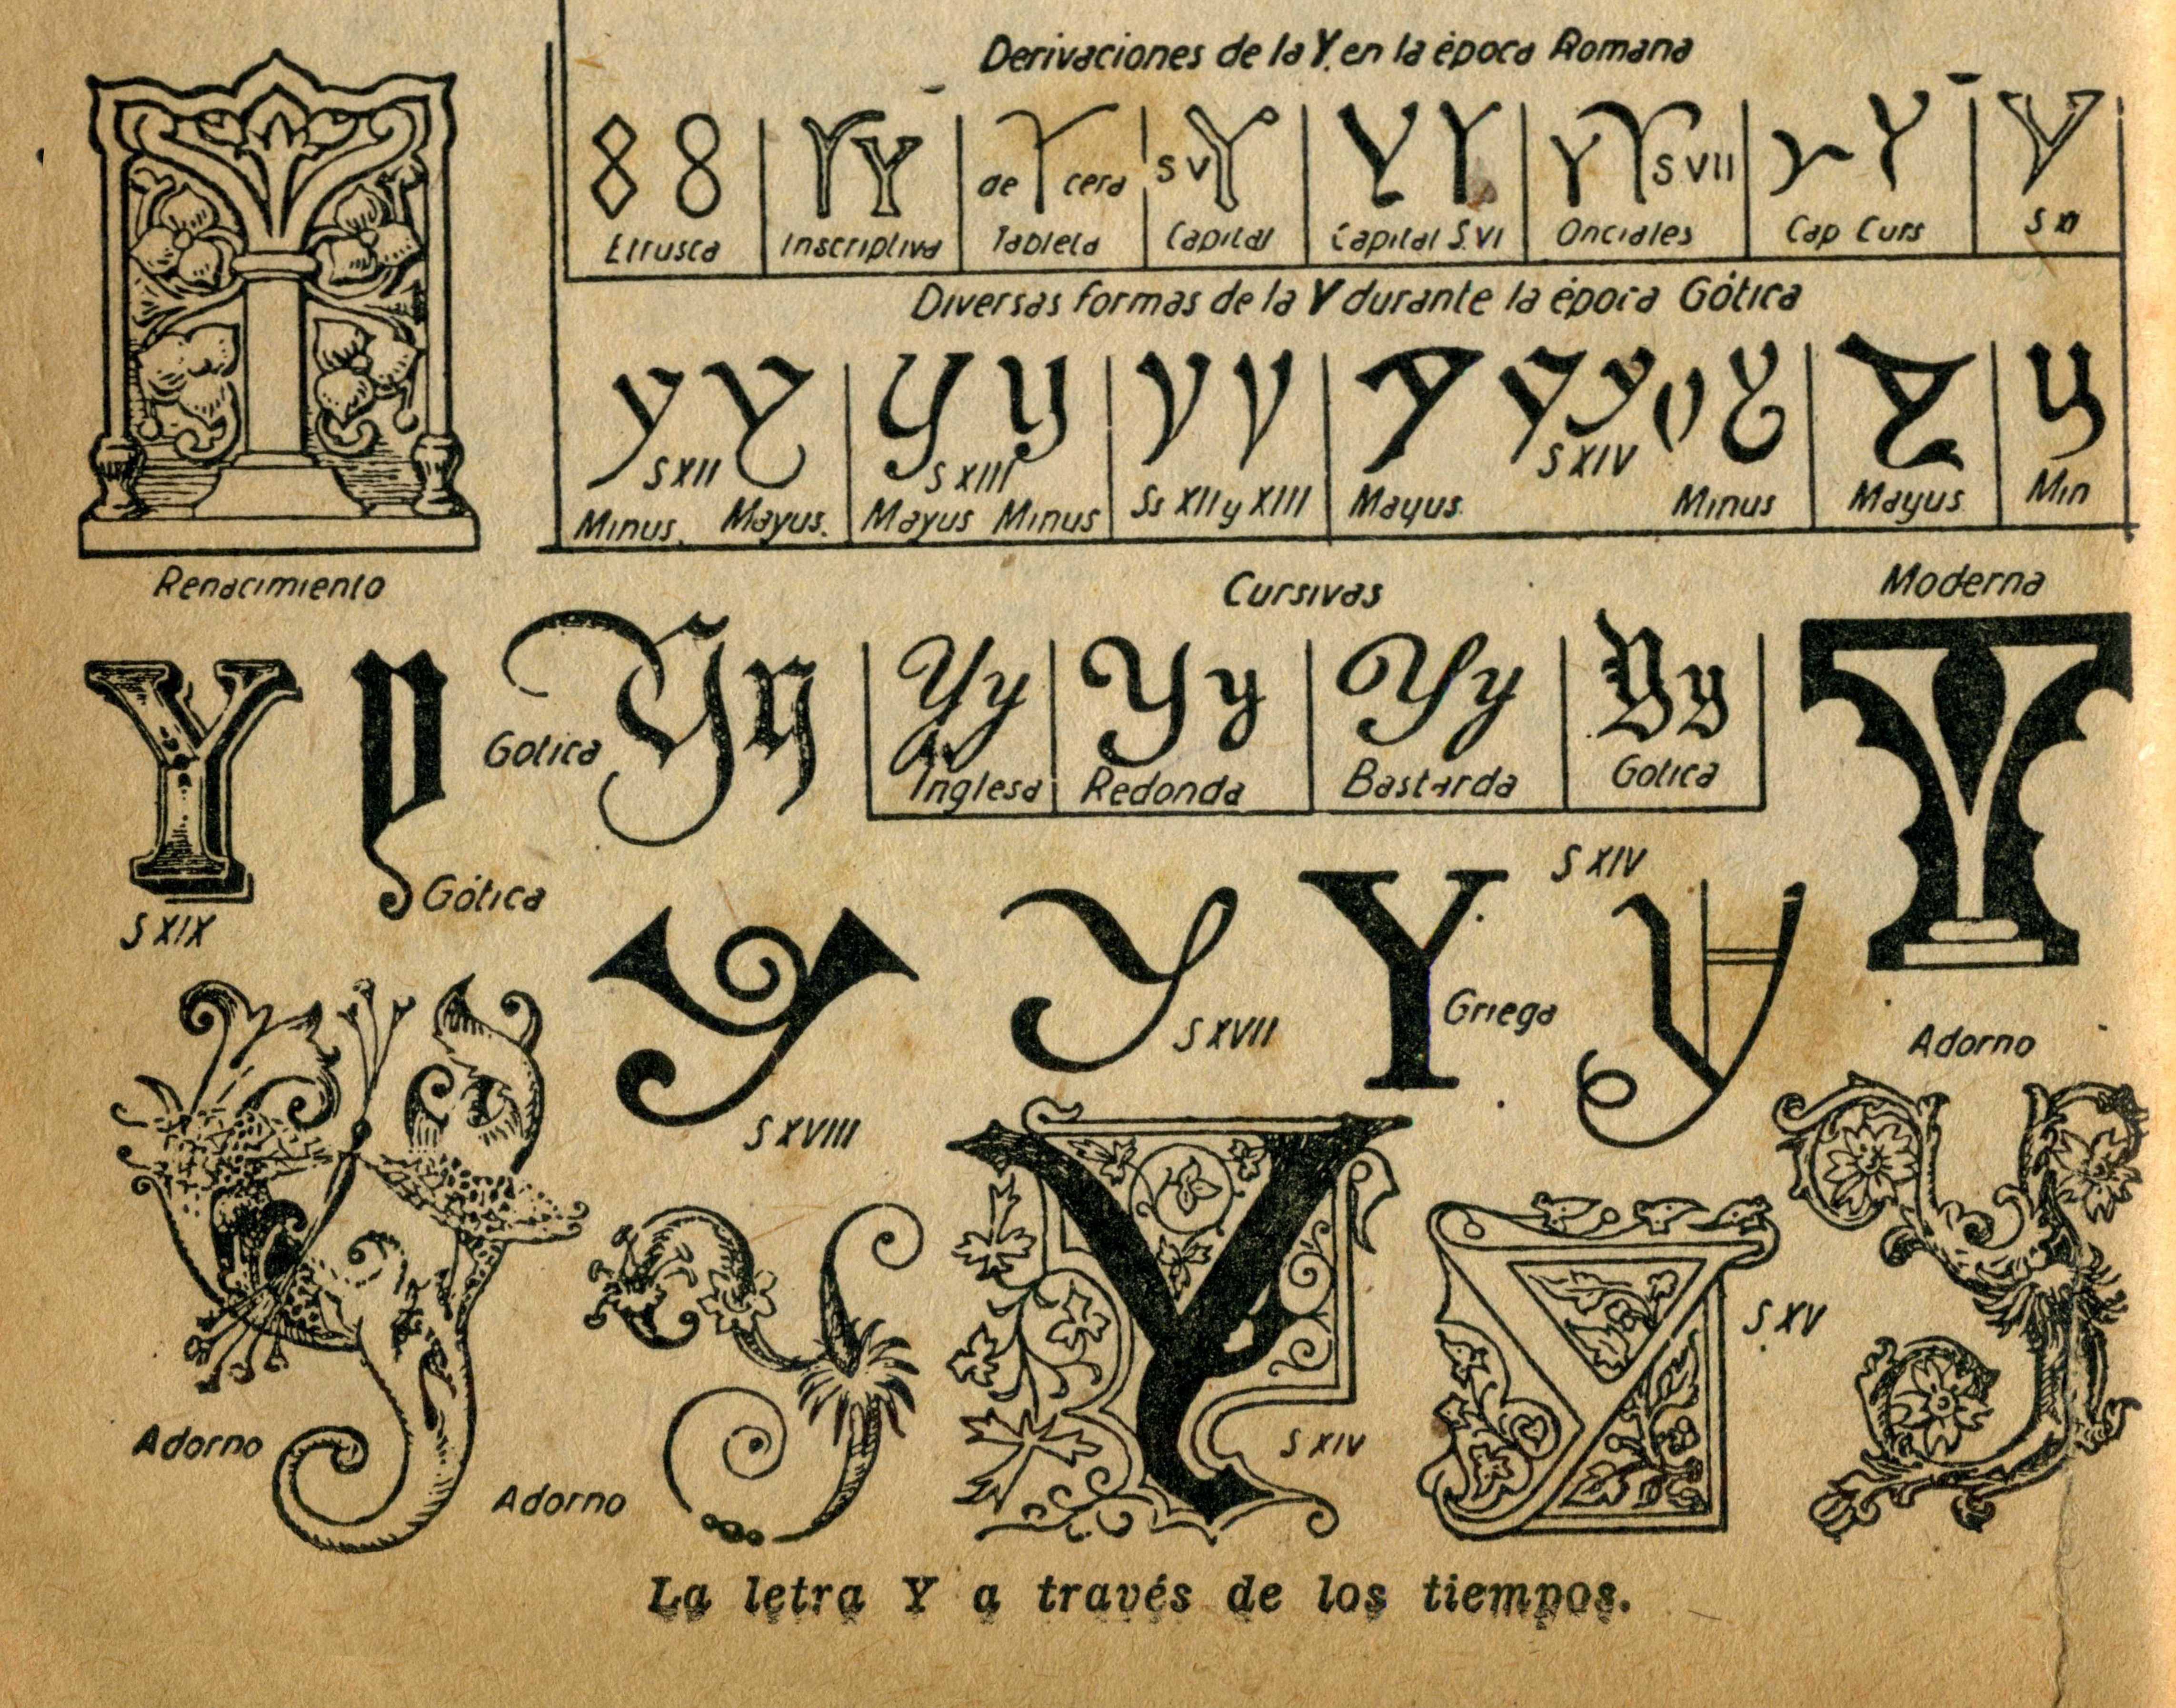 Derivaciones de la Y. en la época Romana
8 8 Etrusca
Y Y Inscriptiva
de Y cera Tableta
S V Y Capital
Y Y Capital S. VI
Y Y S VII Onciales
Y Y Cap Curs
Y S XI
Diversas formas de la Y durante la época Gótica
y Y S XII Minus. Mayus.
Y y S XIII Mayus Minus
Y Y Ss XII y XIII
Y Y y y S XIV Mayus Minus
Y Mayus
y Min
Renacimiento
Cursivas
Moderna
Y S XIX
y Gótica
Gotica Y y
Y y Inglesa
Y y Redonda
Y y Bastarda
Y y Gotica
Y
Y S XVIII
Y S XVII
Y Griega
S XIV Y
Adorno
Adorno
Adorno
Y S XIV
Y S XV
La letra Y a través de los tiempos.